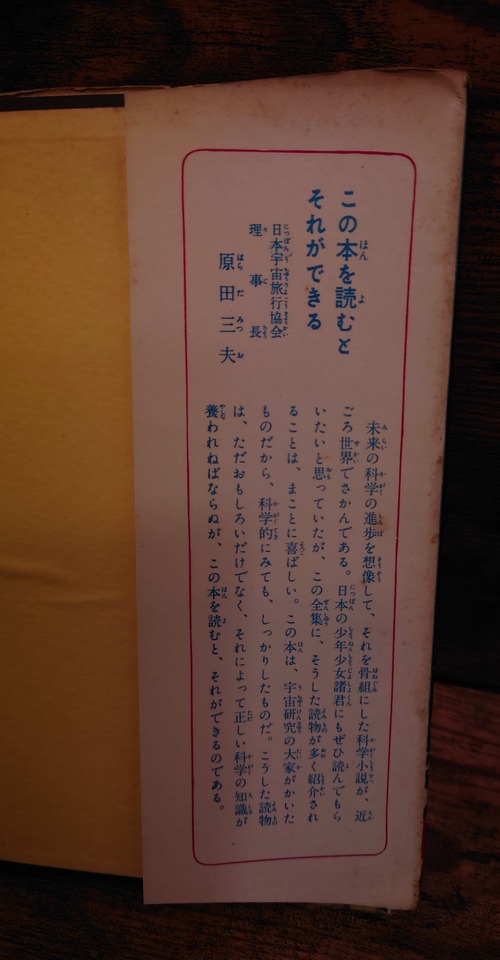 この本を読むと
それができる
日本宇宙旅行協会
理事長
原田三夫
未来の科学の進歩を想像して、それを骨組にした科学小説が、近
ごろ世界でさかんである。日本の少年少女諸君にもぜひ読んでもら
いたいと思っていたが、この全集に、そうした読物が多く紹介され
ることは、まことに喜ばしい。この本は、宇宙研究の大家がかいた
ものだから、科学的にみても、しっかりしたものだ。こうした読物
は、ただおもしろいだけでなく、それによって正しい科学の知識が
養われねばならぬが、この本を読むと、それができるのである。